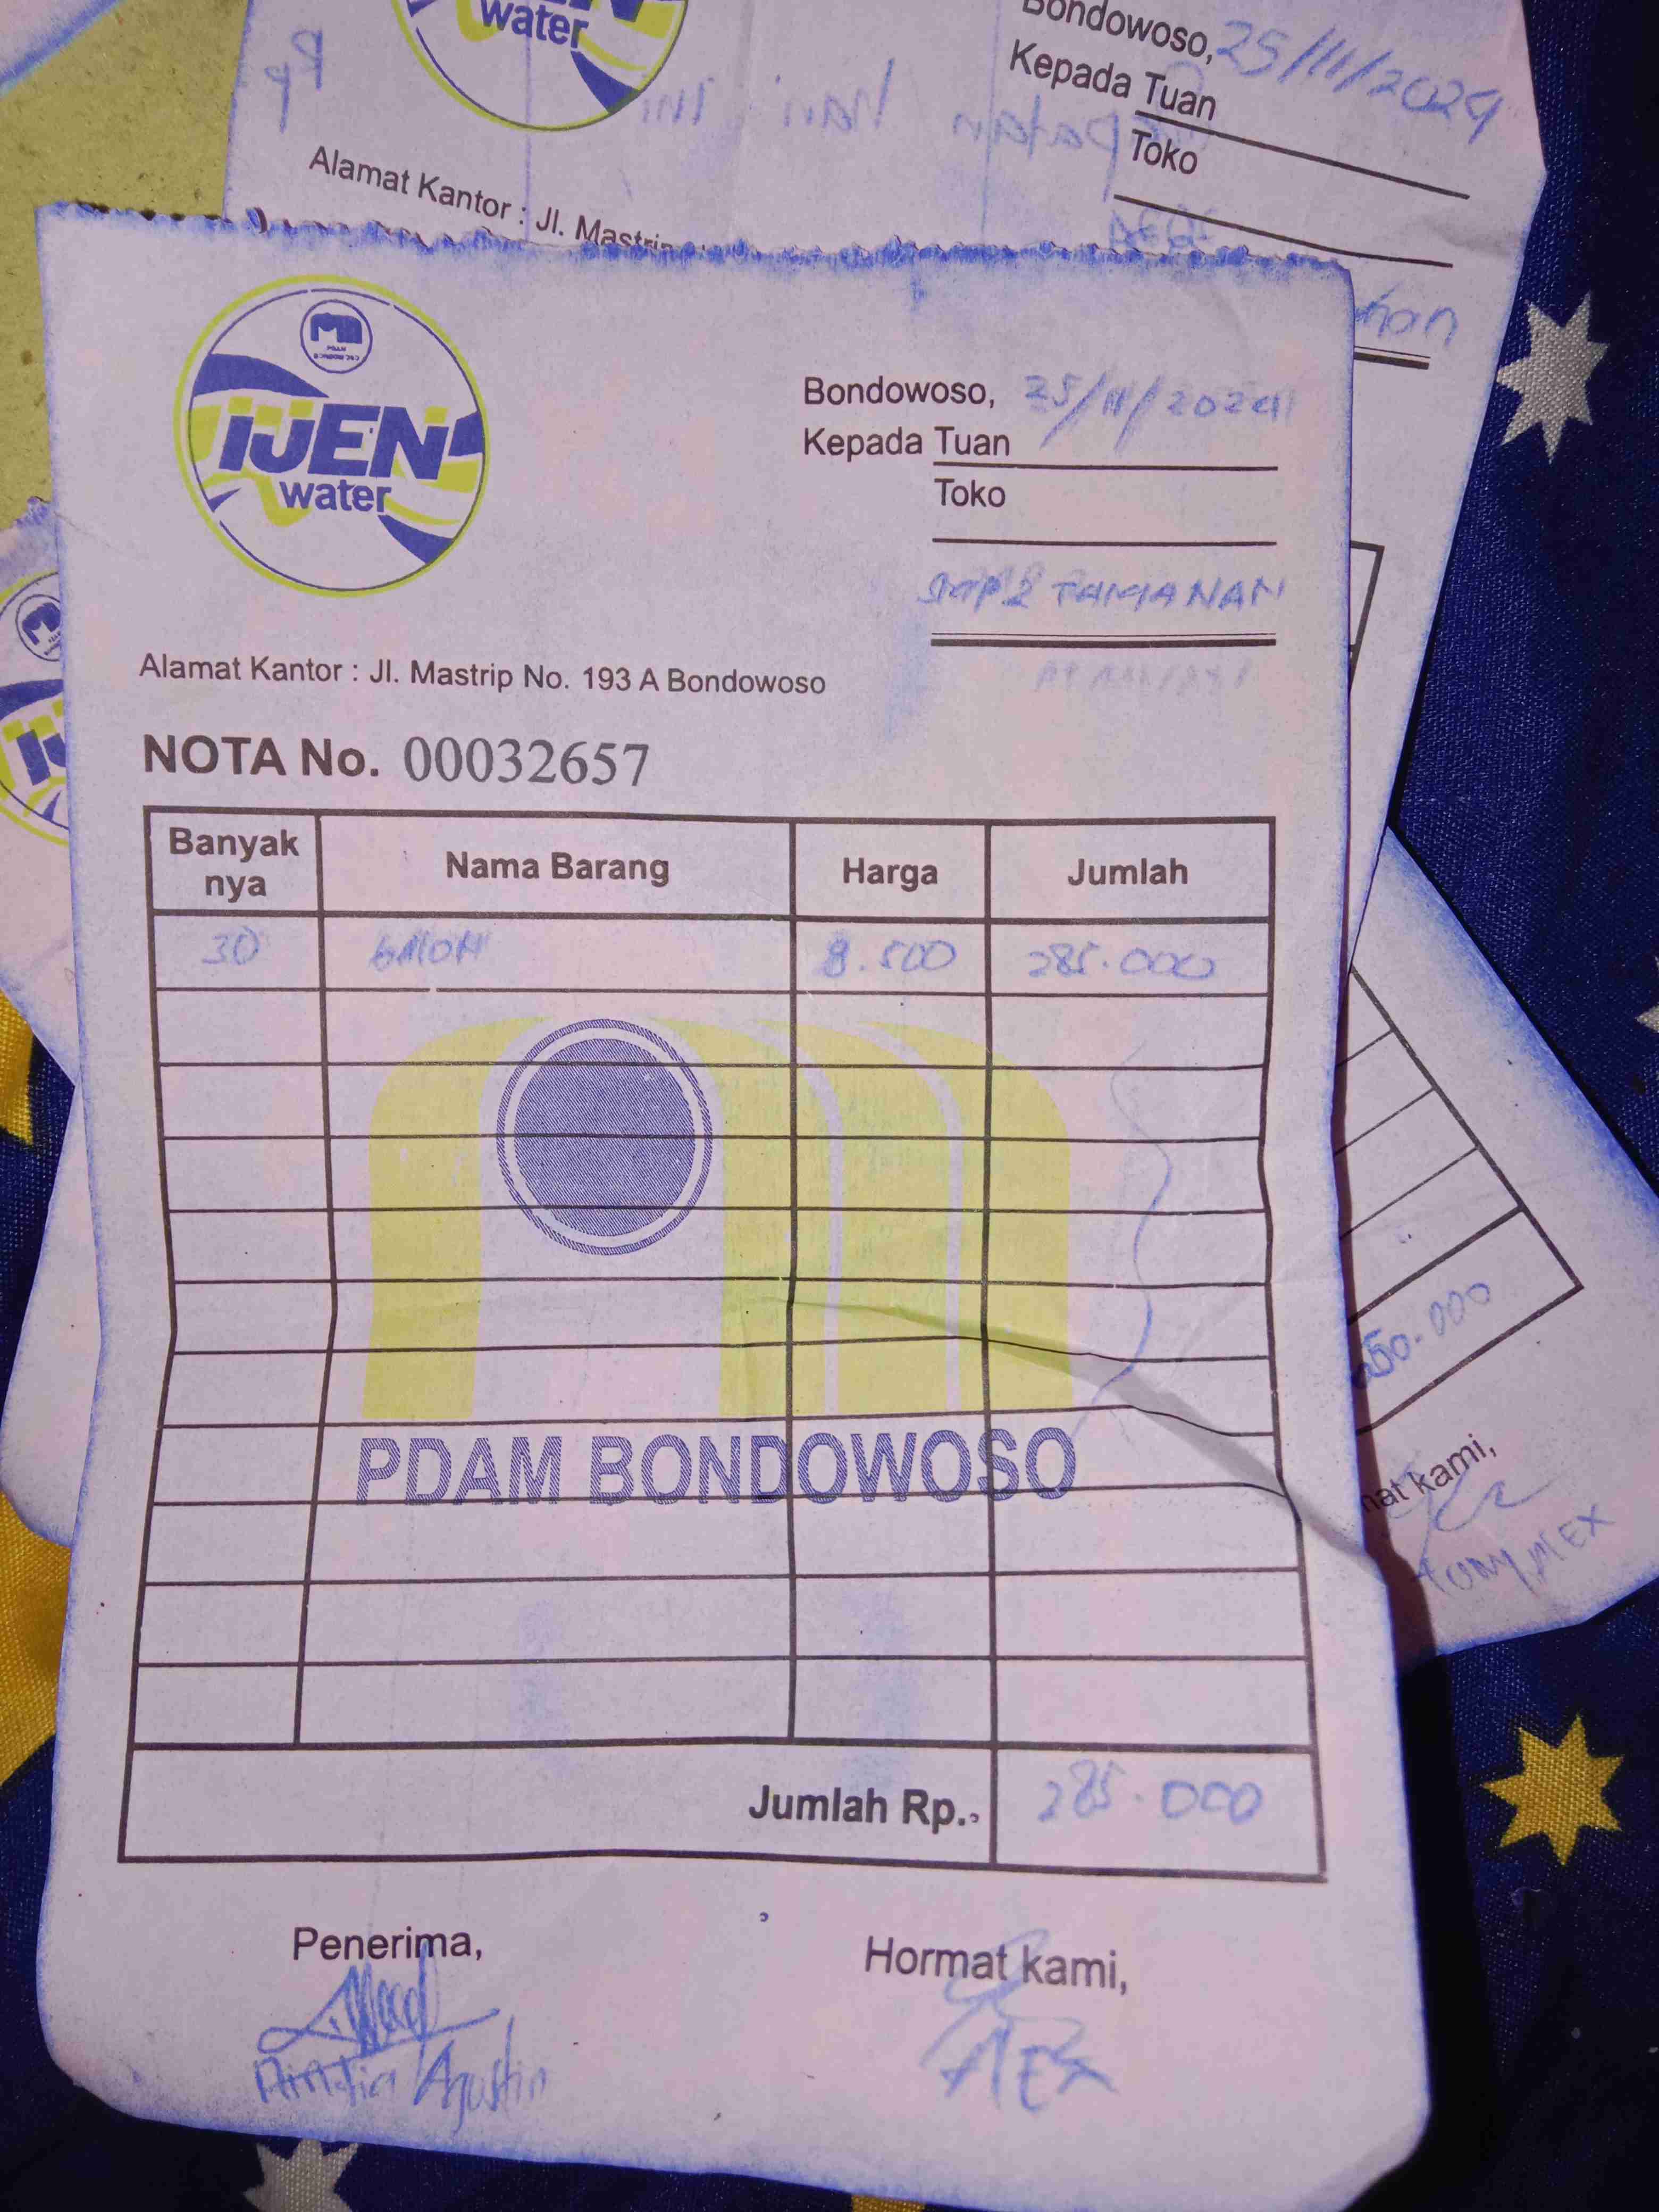 water
Bondowoso, 25/11/2024
Kepada Tuan
Toko
Alamat Kantor : Jl. Mastrip
PDAM
IJEN
water
Bondowoso, 25/11/2024
Kepada Tuan
Toko
SMP2 TAMANAN
Alamat Kantor : Jl. Mastrip No. 193 A Bondowoso
NOTA No. 00032657
Banyak nya Nama Barang Harga Jumlah
30 GALON 8.500 285.000
PDAM BONDOWOSO
Jumlah Rp. 285.000
Penerima, Hormat kami,
Agustin ALEX
50.000
mat kami,